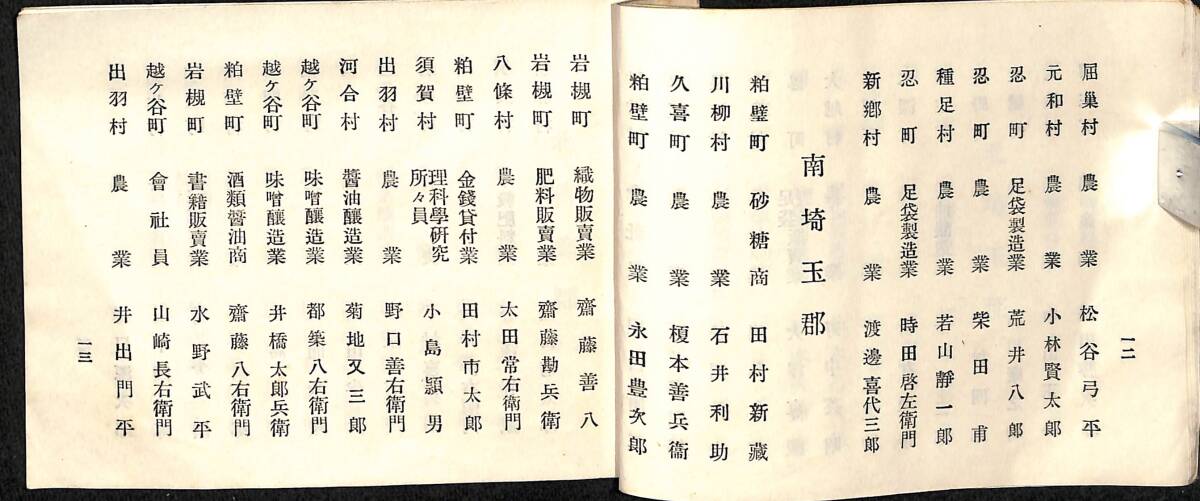 一二
屈巢村 農業 松谷弓平
元和村 農業 小林賢太郎
忍町 足袋製造業 荒井八郎
忍町 農業 柴田四甫
種足村 農業 若山靜一郎
忍町 足袋製造業 時田啓左衛門
新鄕村 農業 渡邊喜代三郎
南埼玉郡
粕壁町 砂糖商 田村新藏
川柳村 農業 石井利助
久喜町 農業 榎本善兵衞
粕壁町 農業 永田豊次郎
岩槻町 織物販賣業 齋藤善八
岩槻町 肥料販賣業 齋藤勘兵衛
八條村 農業 太田常右衛門
粕壁町 金錢貸付業 田村市太郎
須賀村 理科學硏究所々員 小島顥男
出羽村 農業 野口善右衛門
河合村 醬油釀造業 菊地又三郎
越ヶ谷町 味噌釀造業 都築八右衛門
越ヶ谷町 味噌釀造業 井橋太郎兵衛
粕壁町 酒類醬油商 齋藤八右衛門
岩槻町 書籍販賣業 水野武平
越ヶ谷町 會社員 山崎長右衛門
出羽村 農業 井出門平
一三